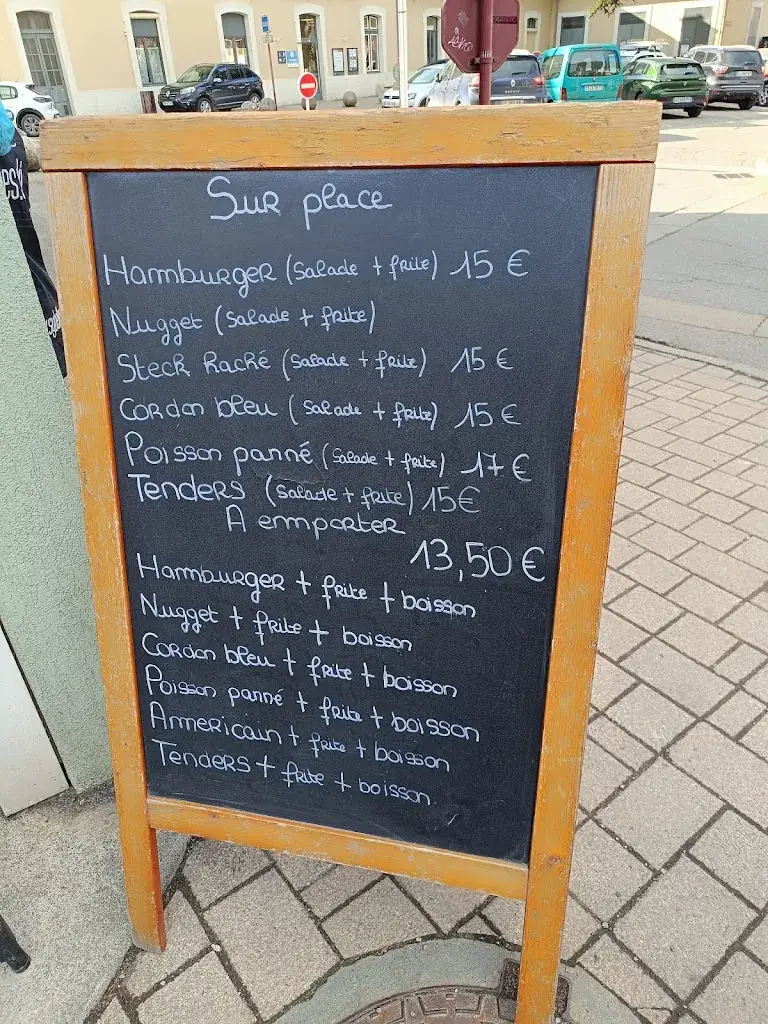 Sur place
Hamburger (salade + frite) 15 €
Nugget (salade + frite)
Steck haché (salade + frite) 15 €
Cordon bleu (salade + frite) 15 €
Poisson panné (salade + frite) 17 €
Tenders (salade + frite) 15€
A emporter
13,50 €
Hamburger + frite + boisson
Nugget + frite + boisson
Cordon bleu + frite + boisson
Poisson panné + frite + boisson
Americain + frite + boisson
Tenders + frite + boisson.